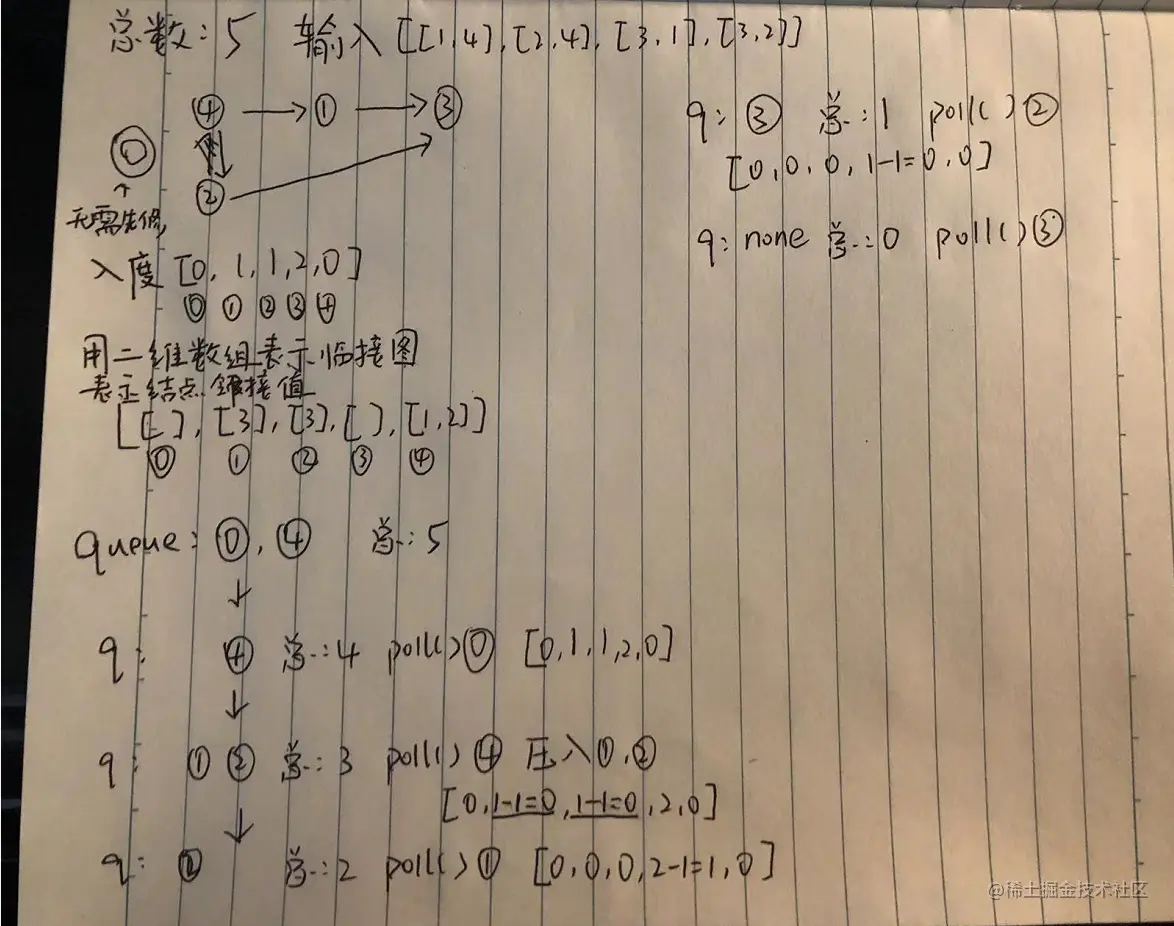 总数：5 输入 [[1,4],[2,4],[3,1],[3,2]]
④ → ① → ③
⓪
②
↑
无需先修
入度 [0, 1, 1, 2, 0]
⓪ ① ② ③ ④
用二维数组表示临接图
表示结点 邻接值
[[ ], [3], [3], [ ], [1,2]]
⓪ ① ② ③ ④
queue: ⓪, ④ 总: 5
↓
q: ④ 总: 4 poll()⓪ [0,1,1,2,0]
↓
q: ① ② 总: 3 poll()④ 压入①,②
[0, 1-1=0, 1-1=0, 2, 0]
↓
q: ② 总: 2 poll()① [0,0,0,2-1=1,0]
q: ③ 总: 1 poll()②
[0,0,0,1-1=0,0]
q: none 总: 0 poll()③
@稀土掘金技术社区